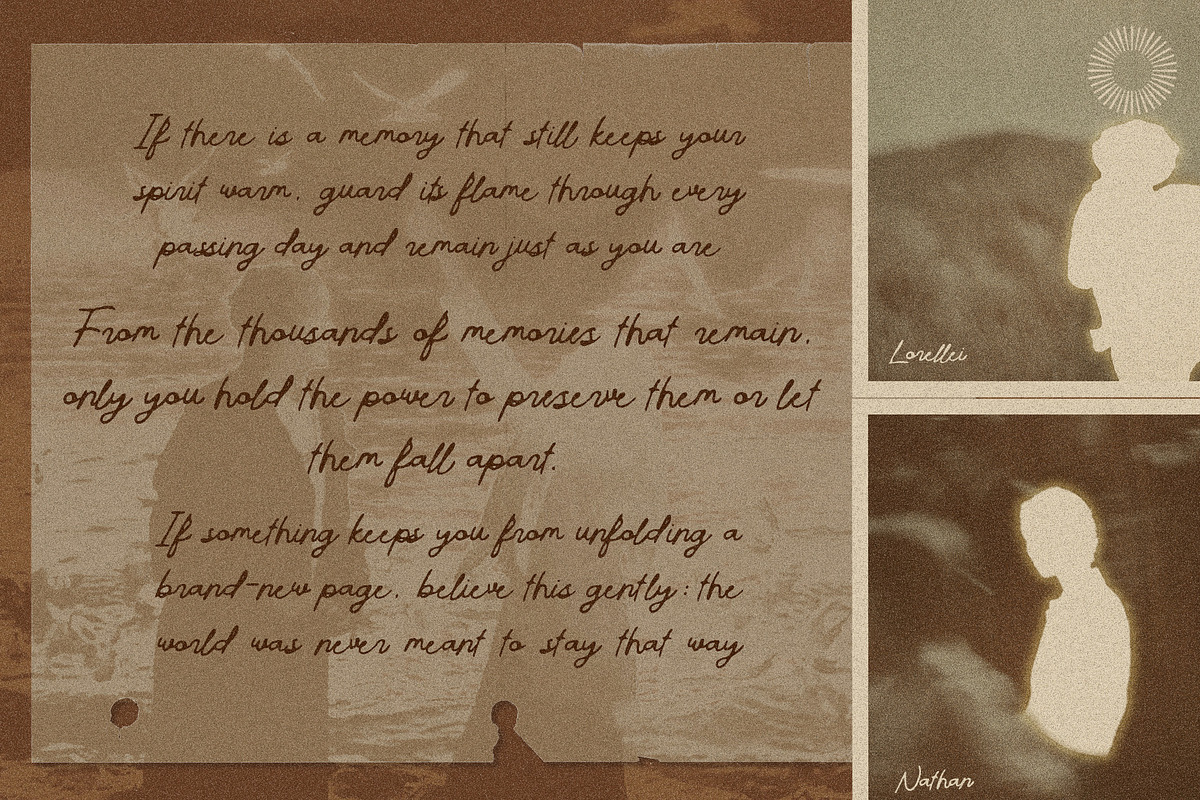 If there is a memory that still keeps your
spirit warm, guard its flame through every
passing day and remain just as you are
From the thousands of memories that remain,
only you hold the power to preserve them or let
them fall apart.
If something keeps you from unfolding a
brand-new page, believe this gently: the
world was never meant to stay that way
Lorellei
Nathan